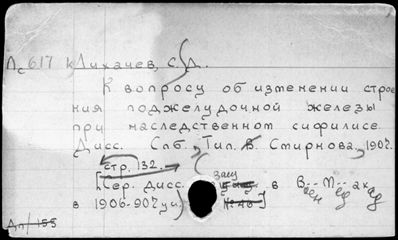 Лс 617 к Лихачев, С. Д.
К вопросу об изменении строе
ния поджелудочной железы
при наследственном сифилисе.
Дисс. Спб. Тип. В. Смирнова, 1907.
стр. 132.
[Сер. дисс. защ. в Воен-Мед акад
в 1906-907 уч.
Дп/155